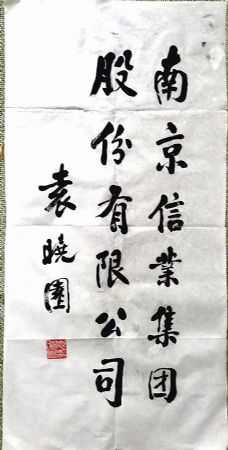 南京信业集团
股份有限公司
袁晓园